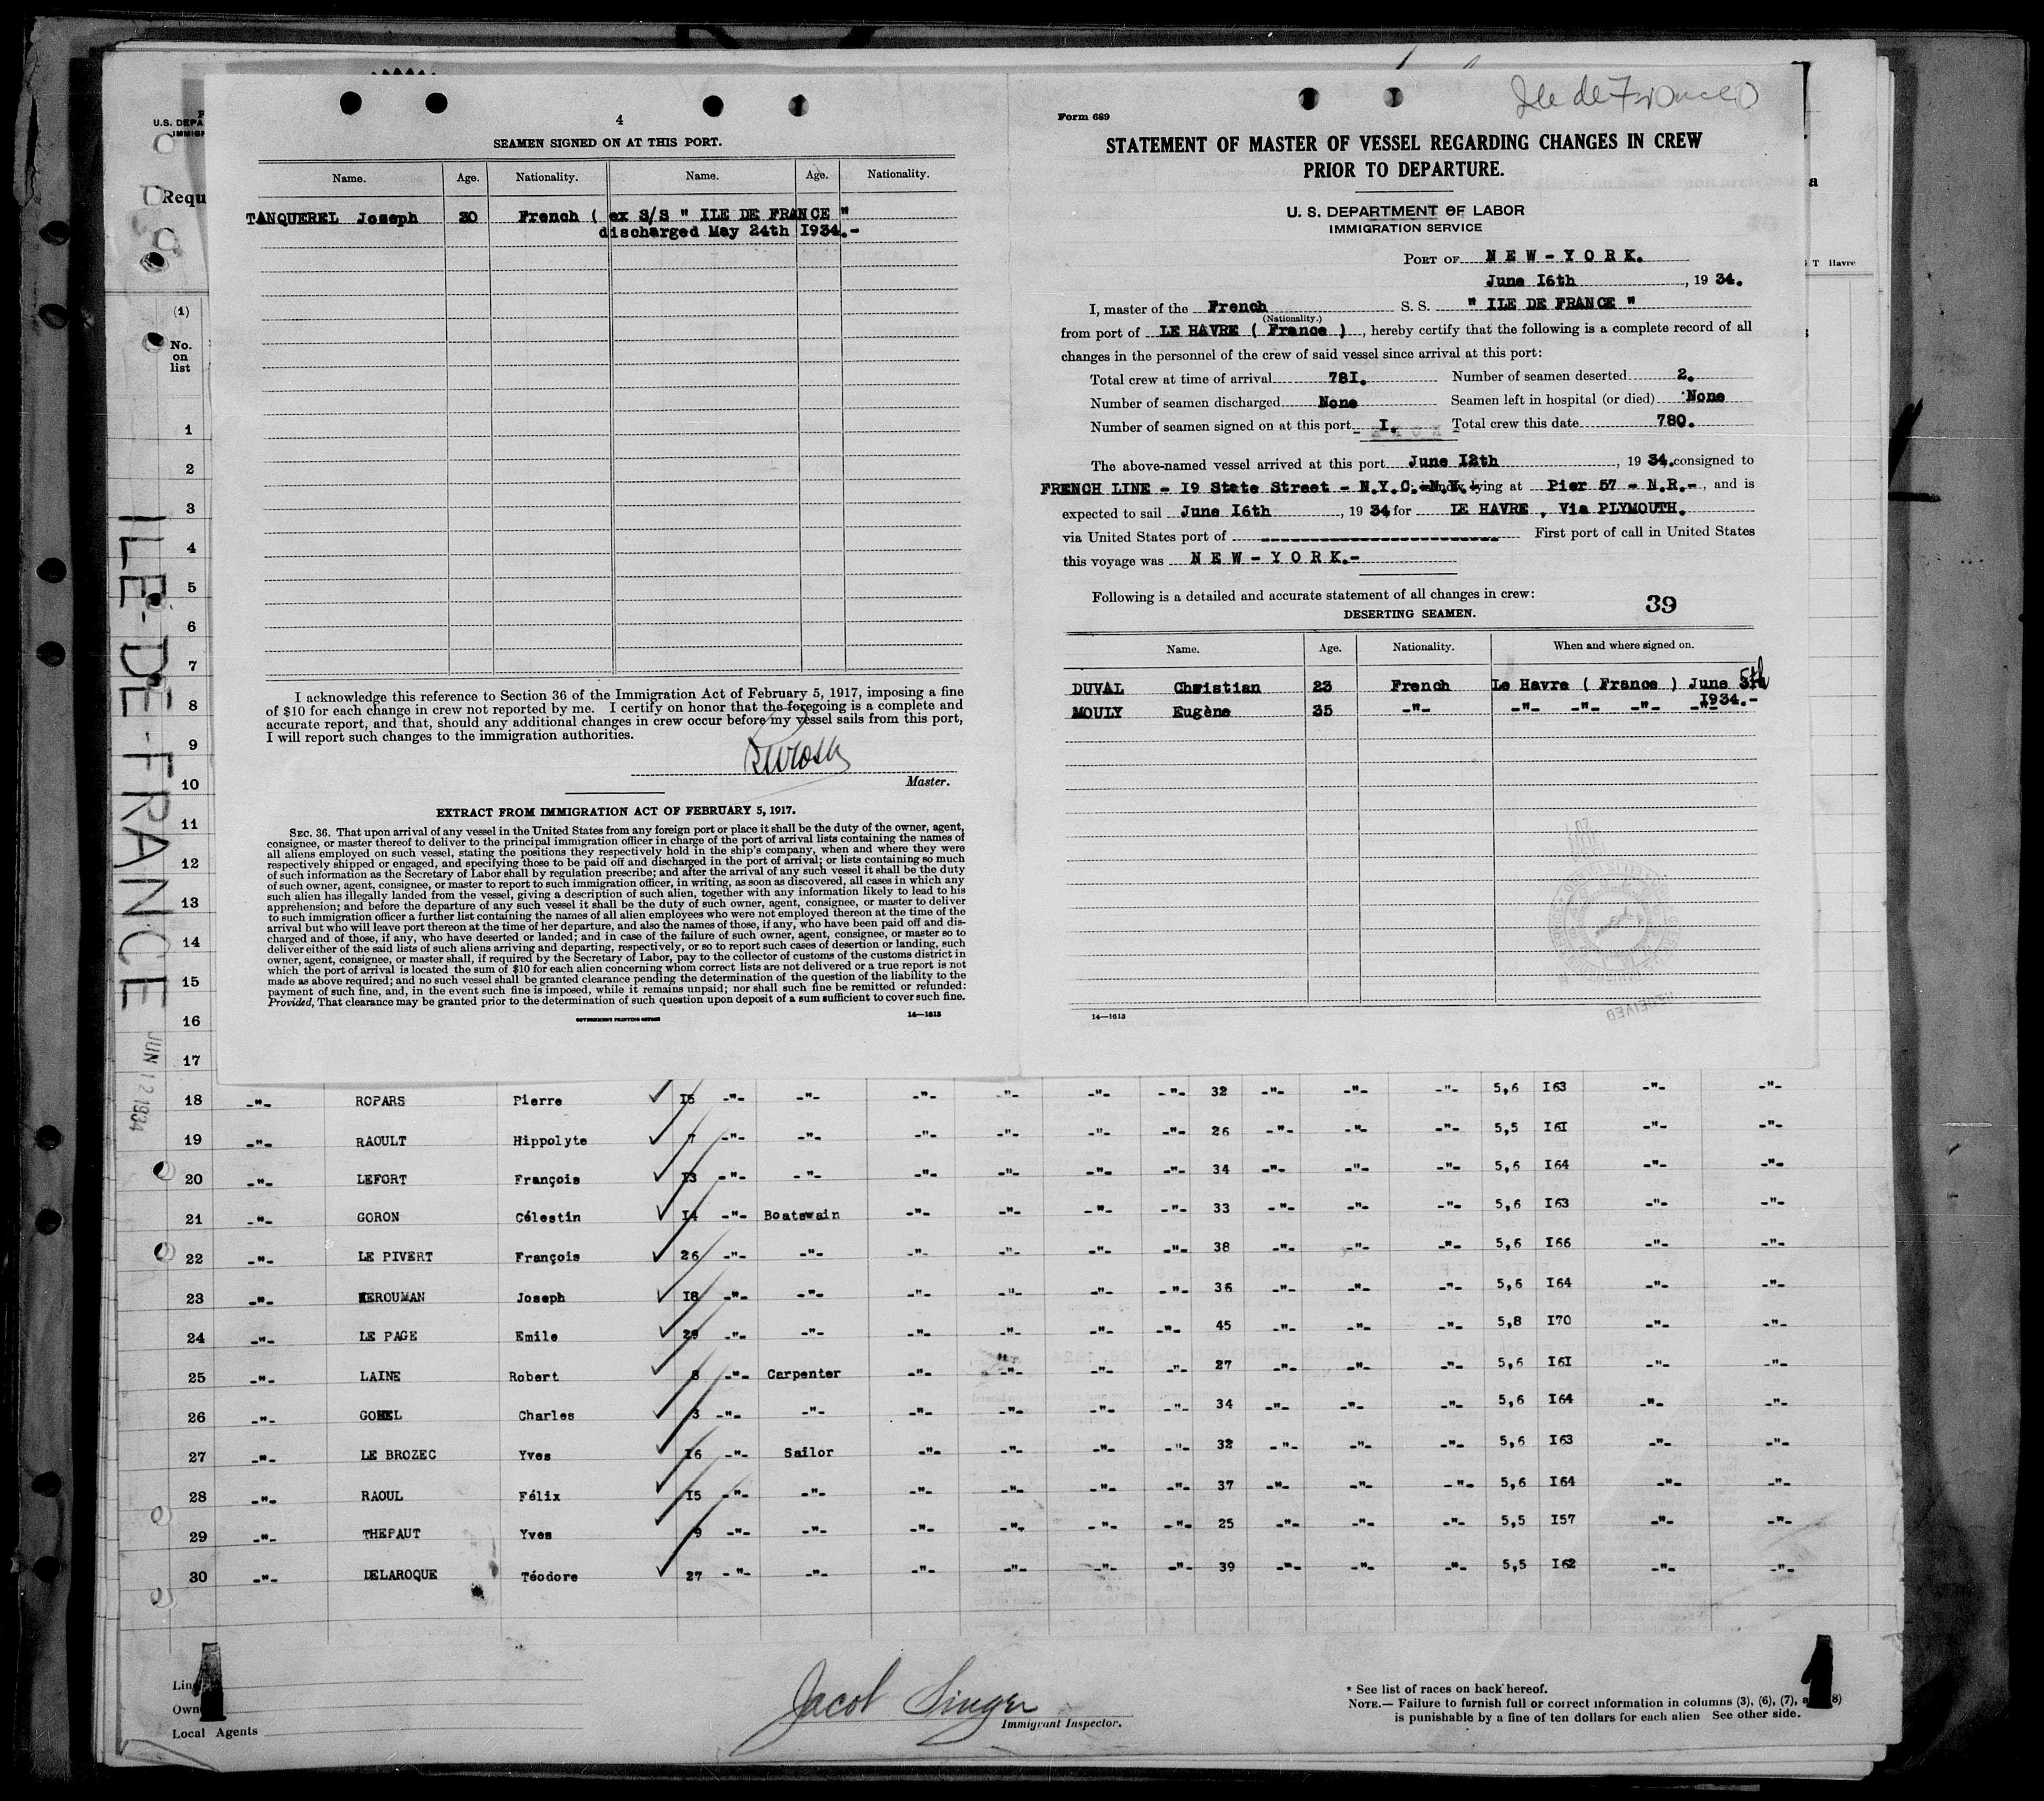 Ile de France
4
SEAMEN SIGNED ON AT THIS PORT.
Name. Age. Nationality. Name. Age. Nationality.
TANQUEREL Joseph 30 French ( ex S/S " ILE DE FRANCE "
discharged May 24th I934.-
I acknowledge this reference to Section 36 of the Immigration Act of February 5, 1917, imposing a fine
of $10 for each change in crew not reported by me. I certify on honor that the foregoing is a complete and
accurate report, and that, should any additional changes in crew occur before my vessel sails from this port,
I will report such changes to the immigration authorities.
Master.
EXTRACT FROM IMMIGRATION ACT OF FEBRUARY 5, 1917.
SEC. 36. That upon arrival of any vessel in the United States from any foreign port or place it shall be the duty of the owner, agent,
consignee, or master thereof to deliver to the principal immigration officer in charge of the port of arrival lists containing the names of
all aliens employed on such vessel, stating the positions they respectively hold in the ship's company, when and where they were
respectively shipped or engaged, and specifying those to be paid off and discharged in the port of arrival; or lists containing so much
of such information as the Secretary of Labor shall by regulation prescribe; and after the arrival of any such vessel it shall be the duty
of such owner, agent, consignee, or master to report to such immigration officer, in writing, as soon as discovered, all cases in which any
such alien has illegally landed from the vessel, giving a description of such alien, together with any information likely to lead to his
apprehension; and before the departure of any such vessel it shall be the duty of such owner, agent, consignee, or master to deliver
to such immigration officer a further list containing the names of all alien employees who were not employed thereon at the time of the
arrival but who will leave port thereon at the time of her departure, and also the names of those, if any, who have been paid off and dis-
charged and of those, if any, who have deserted or landed; and in case of the failure of such owner, agent, consignee, or master so to
deliver either of the said lists of such aliens arriving and departing, respectively, or so to report such cases of desertion or landing, such
owner, agent, consignee, or master shall, if required by the Secretary of Labor, pay to the collector of customs of the customs district in
which the port of arrival is located the sum of $10 for each alien concerning whom correct lists are not delivered or a true report is not
made as above required; and no such vessel shall be granted clearance pending the determination of the question of the liability to the
payment of such fine, and, in the event such fine is imposed, while it remains unpaid; nor shall such fine be remitted or refunded:
Provided, That clearance may be granted prior to the determination of such question upon deposit of a sum sufficient to cover such fine.
GOVERNMENT PRINTING OFFICE 14—1613
Form 689
STATEMENT OF MASTER OF VESSEL REGARDING CHANGES IN CREW
PRIOR TO DEPARTURE.
U. S. DEPARTMENT OF LABOR
IMMIGRATION SERVICE
PORT OF NEW-YORK.
June I6th, 19 34.
I, master of the French S. S. " ILE DE FRANCE "
(Nationality.)
from port of LE HAVRE ( France ), hereby certify that the following is a complete record of all
changes in the personnel of the crew of said vessel since arrival at this port:
Total crew at time of arrival 78I. Number of seamen deserted 2.
Number of seamen discharged None Seamen left in hospital (or died) None
Number of seamen signed on at this port I. Total crew this date 780.
The above-named vessel arrived at this port June I2th, 19 34. consigned to
FRENCH LINE - I9 State Street - N.Y.C. lying at Pier 57 - N.R.-, and is
expected to sail June I6th, 19 34 for LE HAVRE, Via PLYMOUTH.
via United States port of First port of call in United States
this voyage was NEW-YORK.-
Following is a detailed and accurate statement of all changes in crew:
39
DESERTING SEAMEN.
Name. Age. Nationality. When and where signed on.
DUVAL Christian 23 French Le Havre ( France ) June 5th
I934.-
MOULY Eugène 35 -"- -"- -"- -"- -"-
14—1613
RECEIVED
U. S. DEPA
IMMIGR
Requ
a
T Havre
(1)
No.
on
list
1
2
3
4
5
6
7
8
9
10
11
12
13
14
15
16
17
ILE-DE-FRANCE
JUN 12 1934
18 -"- ROPARS Pierre I5 -"- -"- -"- -"- -"- -"- 32 -"- -"- -"- 5,6 I63 -"- -"-
19 -"- RAOULT Hippolyte 7 -"- -"- -"- -"- -"- -"- 26 -"- -"- -"- 5,5 I6I -"- -"-
20 -"- LEFORT François I3 -"- -"- -"- -"- -"- -"- 34 -"- -"- -"- 5,6 I64 -"- -"-
21 -"- GORON Célestin I4 -"- Boatswain -"- -"- -"- -"- 33 -"- -"- -"- 5,6 I63 -"- -"-
22 -"- LE PIVERT François 26 -"- -"- -"- -"- -"- -"- 38 -"- -"- -"- 5,6 I66 -"- -"-
23 -"- KEROUMAN Joseph I8 -"- -"- -"- -"- -"- -"- 36 -"- -"- -"- 5,6 I64 -"- -"-
24 -"- LE PAGE Emile 29 -"- -"- -"- -"- -"- -"- 45 -"- -"- -"- 5,8 I70 -"- -"-
25 -"- LAINE Robert 8 -"- Carpenter -"- -"- -"- -"- 27 -"- -"- -"- 5,6 I6I -"- -"-
26 -"- GOHEL Charles 3 -"- -"- -"- -"- -"- -"- 34 -"- -"- -"- 5,6 I64 -"- -"-
27 -"- LE BROZEC Yves I6 -"- Sailor -"- -"- -"- -"- 32 -"- -"- -"- 5,6 I63 -"- -"-
28 -"- RAOUL Félix I5 -"- -"- -"- -"- -"- -"- 37 -"- -"- -"- 5,6 I64 -"- -"-
29 -"- THEPAUT Yves 9 -"- -"- -"- -"- -"- -"- 25 -"- -"- -"- 5,5 I57 -"- -"-
30 -"- DELAROQUE Téodore 27 -"- -"- -"- -"- -"- -"- 39 -"- -"- -"- 5,5 I62 -"- -"-
Lin
Own
Local Agents
Jacob Singer
Immigrant Inspector.
* See list of races on back hereof.
NOTE.— Failure to furnish full or correct information in columns (3), (6), (7), a 8)
is punishable by a fine of ten dollars for each alien See other side.
1